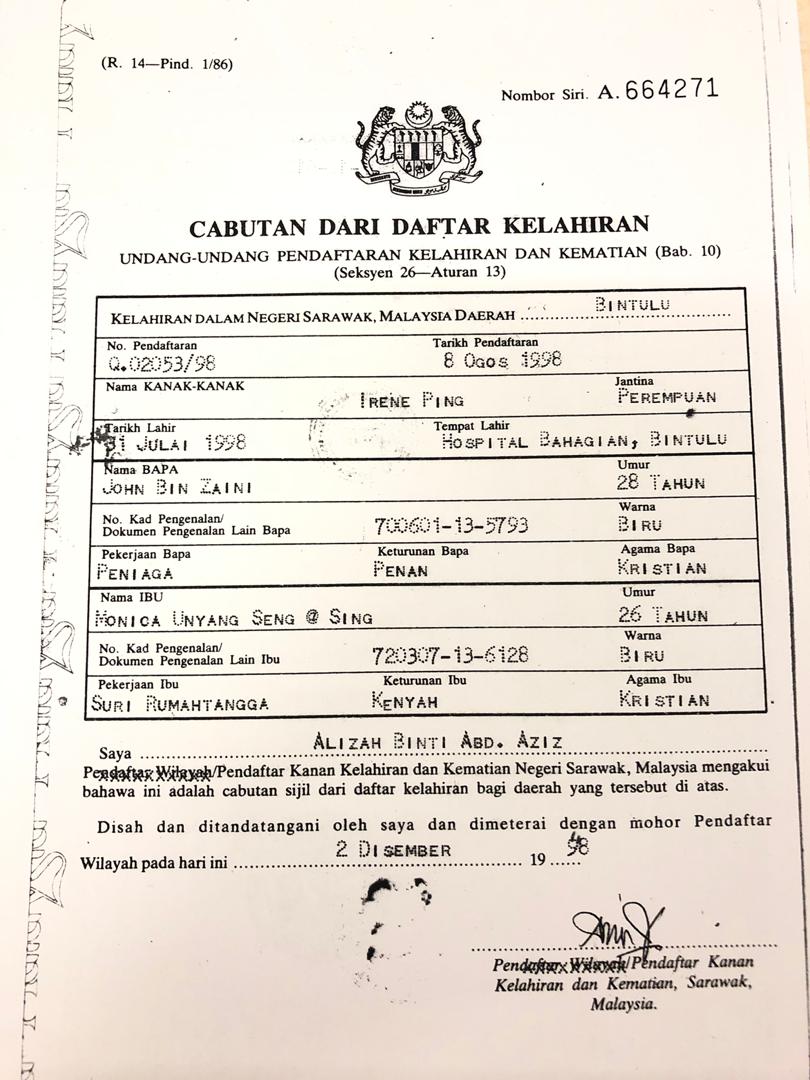 (R. 14—Pind. 1/86)
Nombor Siri. A. 664271
CABUTAN DARI DAFTAR KELAHIRAN
UNDANG-UNDANG PENDAFTARAN KELAHIRAN DAN KEMATIAN (Bab. 10)
(Seksyen 26—Aturan 13)
KELAHIRAN DALAM NEGERI SARAWAK, MALAYSIA DAERAH BINTULU
No. Pendaftaran Tarikh Pendaftaran
Q.02053/98 8 OGOS 1998
Nama KANAK-KANAK Jantina
IRENE PING PEREMPUAN
Tarikh Lahir Tempat Lahir
31 JULAI 1998 HOSPITAL BAHAGIAN, BINTULU
Nama BAPA Umur
JOHN BIN ZAINI 28 TAHUN
No. Kad Pengenalan/ Warna
Dokumen Pengenalan Lain Bapa 700601-13-5793 BIRU
Pekerjaan Bapa Keturunan Bapa Agama Bapa
PENIAGA PENAN KRISTIAN
Nama IBU Umur
MONICA UNYANG SENG @ SING 26 TAHUN
No. Kad Pengenalan/ Warna
Dokumen Pengenalan Lain Ibu 720307-13-6128 BIRU
Pekerjaan Ibu Keturunan Ibu Agama Ibu
SURI RUMAHTANGGA KENYAH KRISTIAN
Saya ALIZAH BINTI ABD. AZIZ
Pendaftar Wilayah/Pendaftar Kanan Kelahiran dan Kematian Negeri Sarawak, Malaysia mengakui
bahawa ini adalah cabutan sijil dari daftar kelahiran bagi daerah yang tersebut di atas.
Disah dan ditandatangani oleh saya dan dimeterai dengan mohor Pendaftar
Wilayah pada hari ini 2 DISEMBER 19 98
Pendaftar Wilayah/Pendaftar Kanan
Kelahiran dan Kematian, Sarawak,
Malaysia.